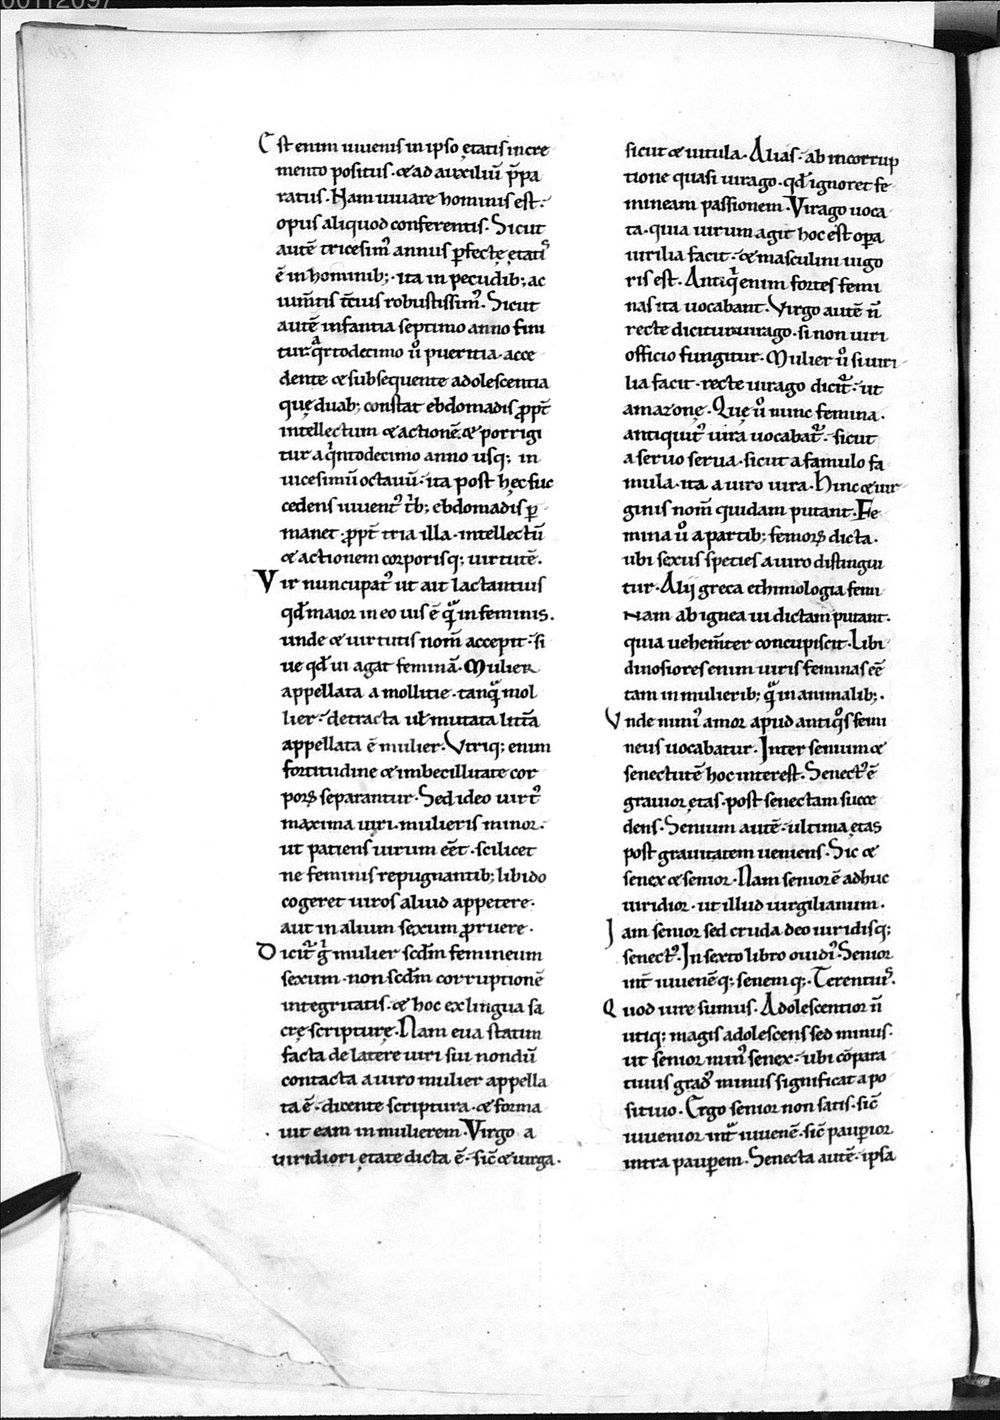 Est enim iuuenis in ipso ętatis incre
mento positus · & ad auxiliū p̄pa
ratus · Nam iuuare hominis est ·
opus aliquod conferentis · Sicut
autē tricesimꝰ annus ꝑfectę ętatis
ē in hominib; · ita in pecudib; ac
iumtis tc̄ius robustissimꝰ · Sicut
autē infantia septimo anno fini
tur · qͣrtodecimo ů pueritia · acce
dente & subsequente adolescentia
quę duab; constat ebdomadis ꝓpt̄
intellectum & actionē · & porrigi
tur a qͥntodecimo anno usq; in
uicesimū octauū · ita post hęc suc
cedens iuuentꝰ t̄b; ebdomadis ꝑ
manet · ꝓpt̄ tria illa · intellectū
& actionem corporisq; uirtutē ·
Vir nuncupatꝰ ut ait lactantius
qđ maior in eo uis ē qͣ in feminis ·
unde & uirtutis nom̄ accepit · si
ue qđ ui agat feminā · Mulier
appellata a mollitie · tanqͣ mol
lier · detracta ul̄ mutata litt̄a
appellata ē mulier · Vtriq; enim
fortitudine & imbecillitate cor
porꝝ separantur · Sed ideo uirtꝰ
maxima uiri · mulieris minor ·
ut patiens uirum eēt · scilicet
ne feminis repugnantib; libido
cogeret uiros aliud appetere ·
aut in alium sexum ꝓruere ·
Dicit̄ g̊ mulier scđm femineum
sexum · non scđm corruptionē
integritatis · & hoc ex lingua sa
crę scripturę · Nam eua statim
facta de latere uiri sui nondū
contacta a uiro mulier appella
ta ē · dicente scriptura · & forma
uit eam in mulierem · Virgo a
uiridiori ętate dicta ē · sic̄ & uirga ·
sicut & uitula · Alias · ab incorrup
tione quasi uirago · qđ ignoret fe
mineam passionem · Virago uoca
ta · quia uirum agit hoc est opa
uirilia facit · & masculini uigo
ris est · Antiqͥ enim fortes femi
nas ita uocabant · Virgo autē n̄
recte dicitur uirago · si non uiri
officio fungitur · Mulier ů si uiri
lia facit · recte uirago dicit̄ · ut
amazonę · Quę ů nunc femina ·
antiquitꝰ uira uocabat̄ · sicut
a seruo serua · sicut a famulo fa
mula · ita a uiro uira · Hinc & uir
ginis nom̄ quidam putant · Fe
mina ů a partib; femorꝝ dicta ·
ubi sexus species a uiro distingui
tur · Alij greca ethimologia femi
nam ab ignea ui dictam putant ·
quia uehem̄ter concupiscit · Libi
dinosiores enim uiris feminas eē
tam in mulierib; qͣ in animalib; ·
Vnde nimiꝰ amor apud antiqͦs femi
neus uocabatur · Inter senium &
senectutē hoc interest · Senectꝰ ē
grauior ętas · post senectam succe
dens · Senium autē · ultima ętas
post grauitatem ueniens · Sic &
senex & senior · Nam senior ē adhuc
uiridior · ut illud uirgilianum ·
Iam senior sed cruda deo uiridisq;
senectꝰ · In sexto libro ouidiꝰ · Senior
int̄ iuuenēq; senemq; · Terentiꝰ ·
Quod iure sumus · Adolescentior n̄
utiq; magis adolescens sed minus ·
ut senior minꝰ senex · ubi cōpara
tiuus gradꝰ minus significat a po
sitiuo · Ergo senior non satis · sic̄
iuuenior int̄ iuuenē · sic̄ pauꝑior
intra pauꝑem · Senecta autē · ipsa